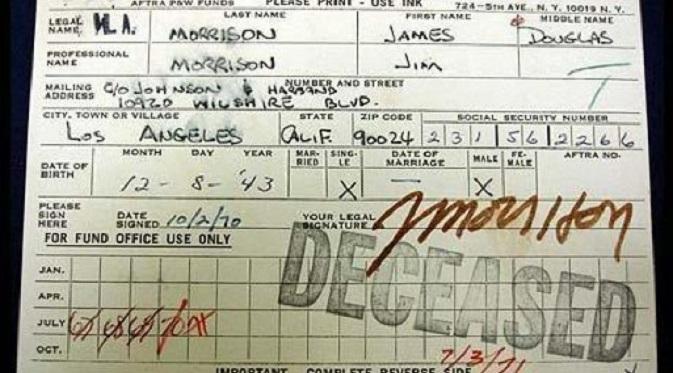 AFTRA P&W FUNDS PLEASE PRINT - USE INK 724-5TH AVE., N.Y. 10019 N.Y.
LAST NAME FIRST NAME MIDDLE NAME
LEGAL NAME H.A. MORRISON JAMES DOUGLAS
PROFESSIONAL NAME MORRISON JIM
NUMBER AND STREET
MAILING ADDRESS C/O JOHNSON & HARBAND
10920 WILSHIRE BLVD.
CITY, TOWN OR VILLAGE STATE ZIP CODE SOCIAL SECURITY NUMBER
LOS ANGELES CALIF. 90024 231 56 2266
DATE OF BIRTH MONTH DAY YEAR MARRIED SINGLE DATE OF MARRIAGE MALE FEMALE AFTRA NO.
12 - 8 - '43 X — X
PLEASE SIGN HERE DATE SIGNED 10/2/70 YOUR LEGAL SIGNATURE J Morrison
FOR FUND OFFICE USE ONLY
DECEASED
JAN.
APR.
JULY
OCT.
7/3/71
IMPORTANT COMPLETE REVERSE SIDE